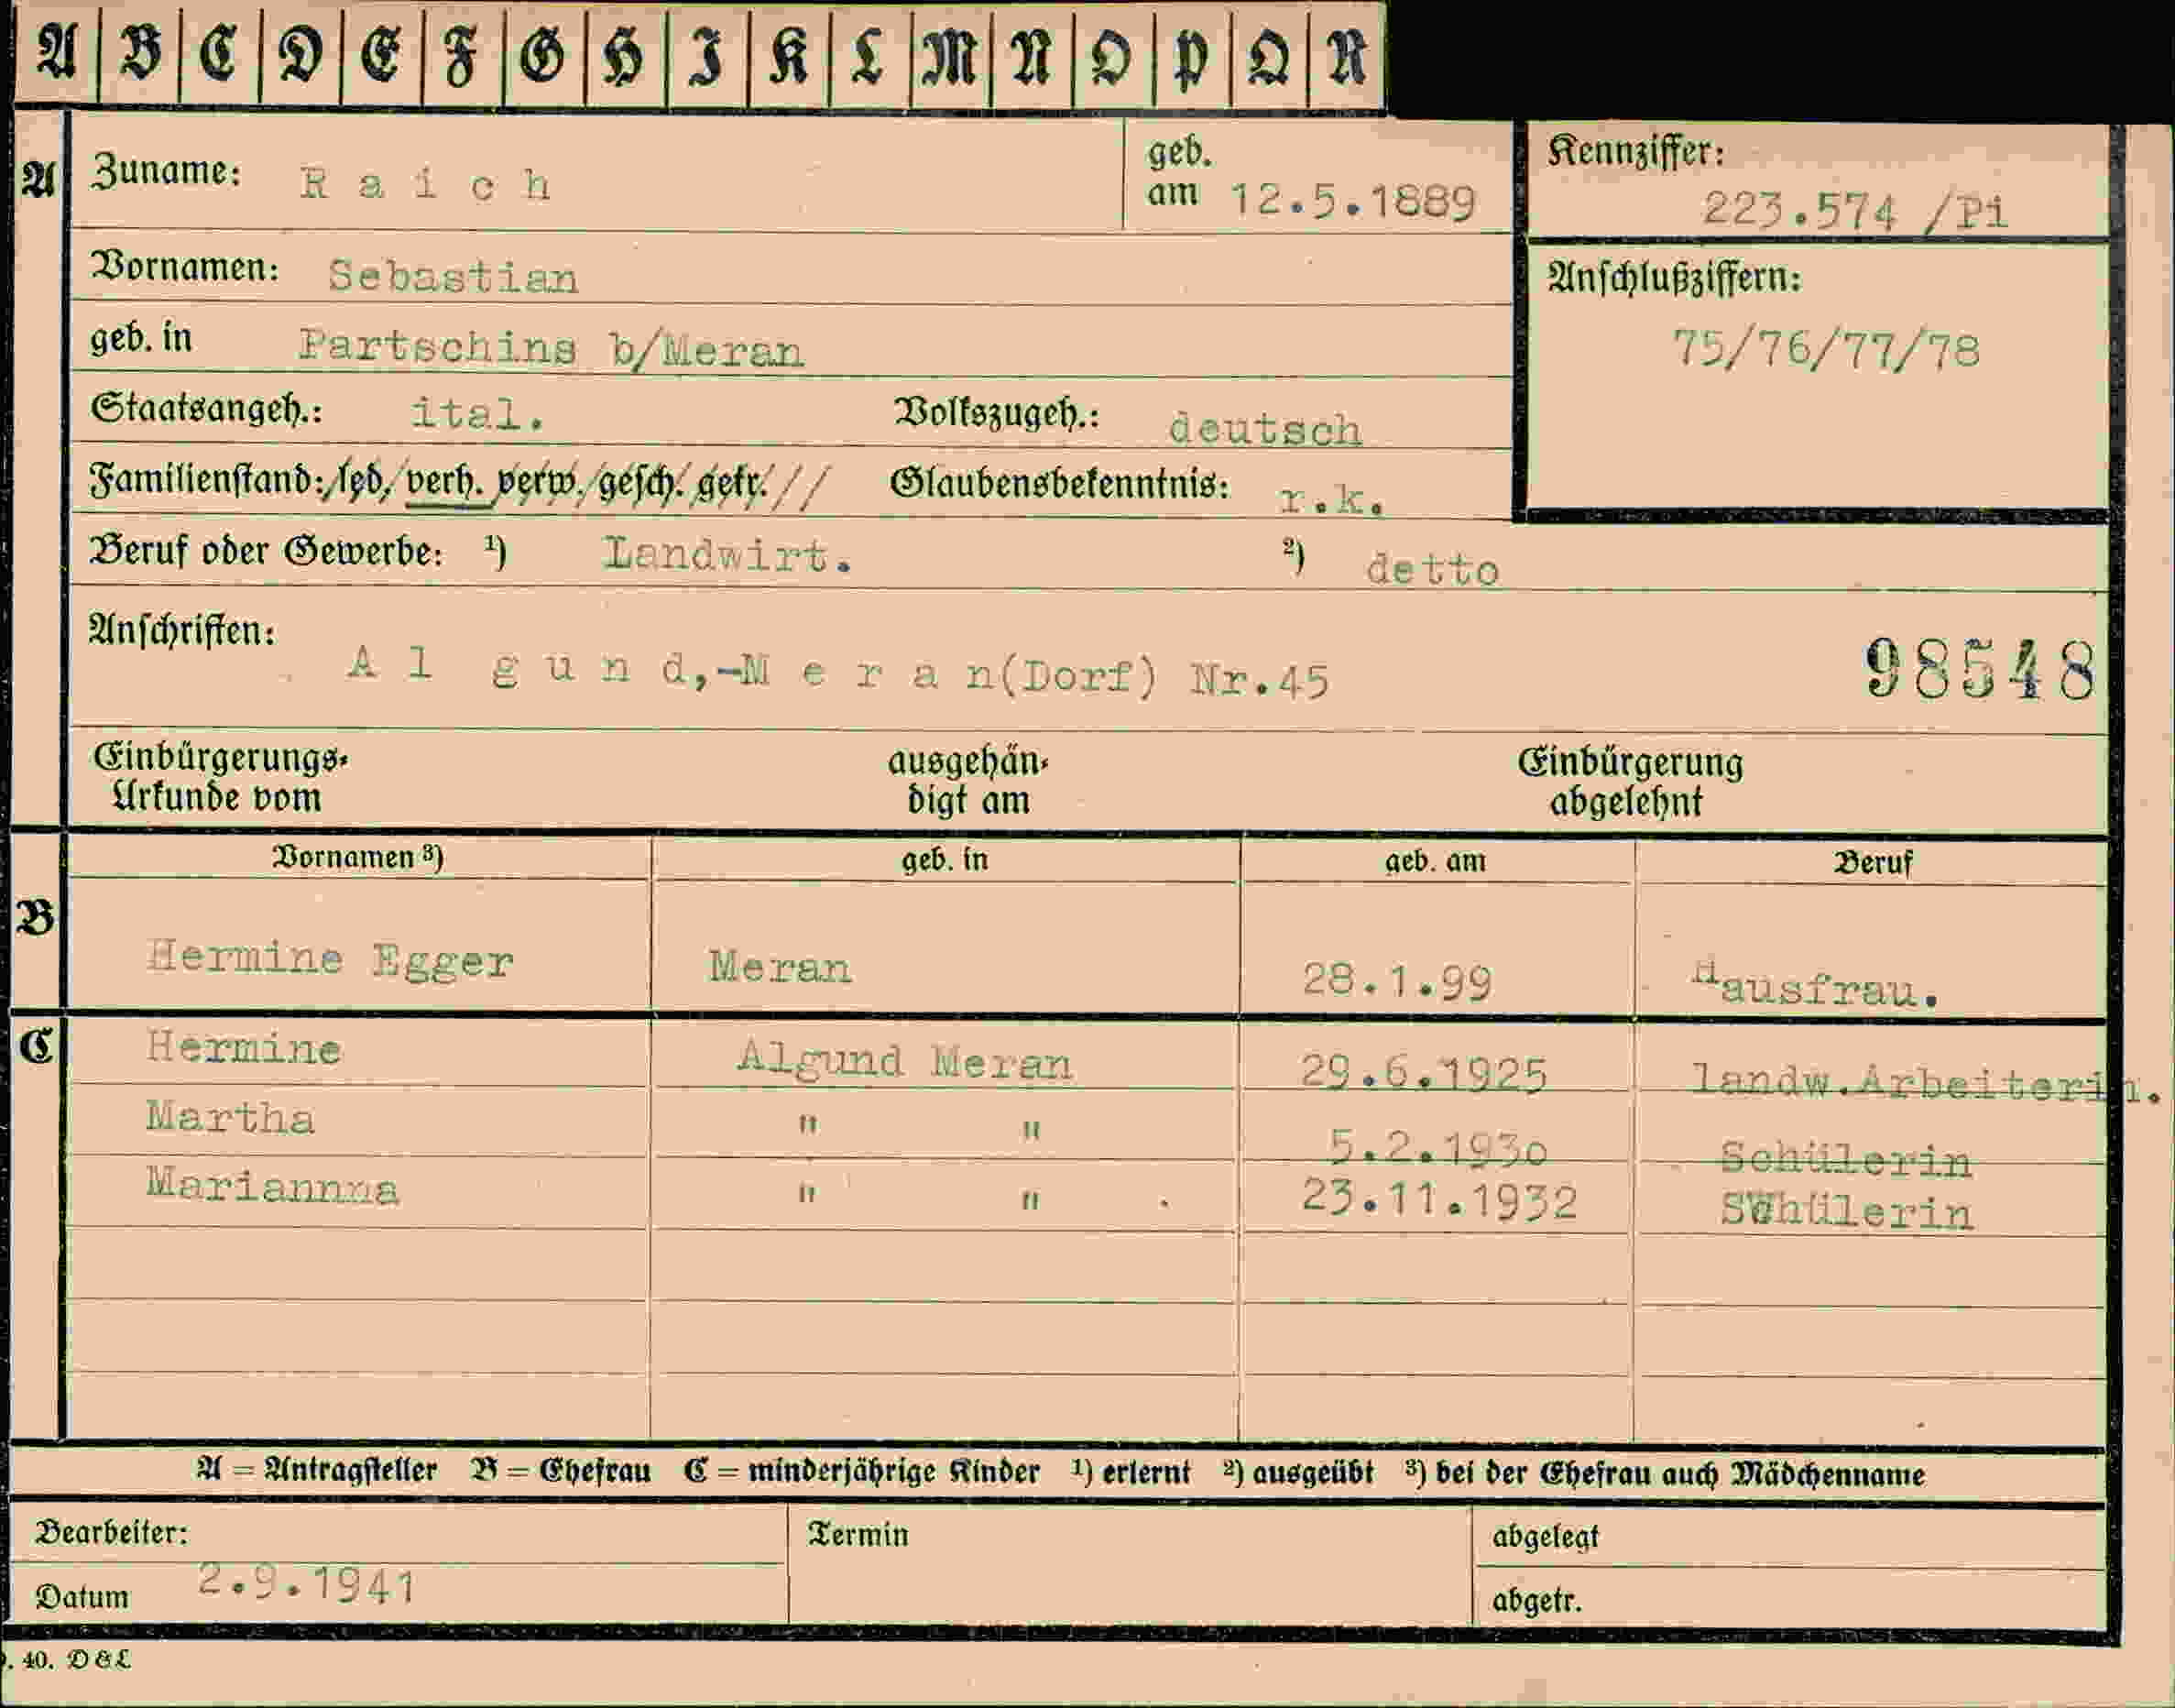 A B C D E F G H I K L M N O P Q R
A Zuname: R a i c h geb. am 12.5.1889 Kennziffer: 223.574 /Pi
Vornamen: Sebastian Anschlußziffern:
geb. in Partschins b/Meran 75/76/77/78
Staatsangeh.: ital. Volkszugeh.: deutsch
Familienstand: led. verh. verw. gesch. getr. Glaubensbekenntnis: r.k.
Beruf oder Gewerbe: ¹) Landwirt. ²) detto
Anschriften: A l g u n d,-M e r a n(Dorf) Nr.45 98548
Einbürgerungs- ausgehän- Einbürgerung
Urkunde vom digt am abgelehnt
Vornamen ³) geb. in geb. am Beruf
B Hermine Egger Meran 28.1.99 Hausfrau.
C Hermine Algund Meran 29.6.1925 landw.Arbeiterin.
Martha " " 5.2.1930 Schülerin
Mariannna " " 23.11.1932 Schülerin
A = Antragsteller B = Ehefrau C = minderjährige Kinder ¹) erlernt ²) ausgeübt ³) bei der Ehefrau auch Mädchenname
Bearbeiter: Termin abgelegt
Datum 2.9.1941 abgetr.
. 40. D & L